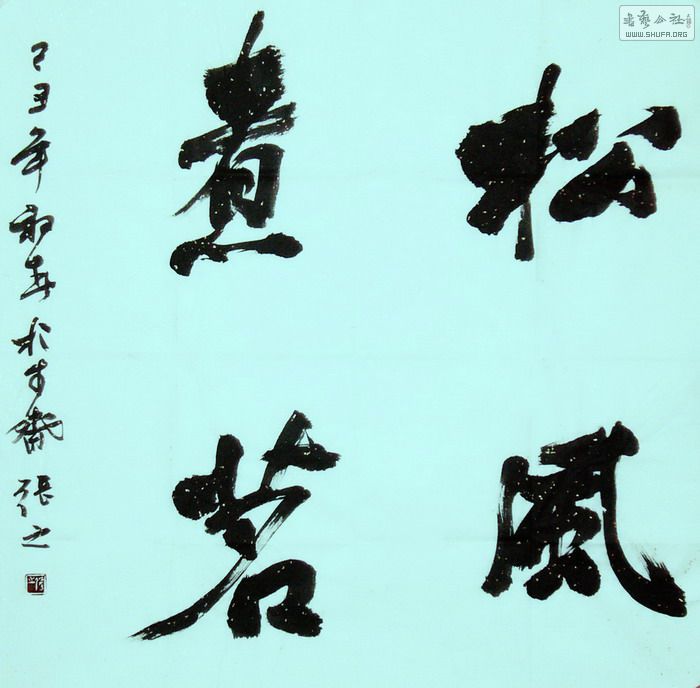 松風
煮茗
己丑年初春於才齋張之
書藝公社
WWW.SHUFA.ORG